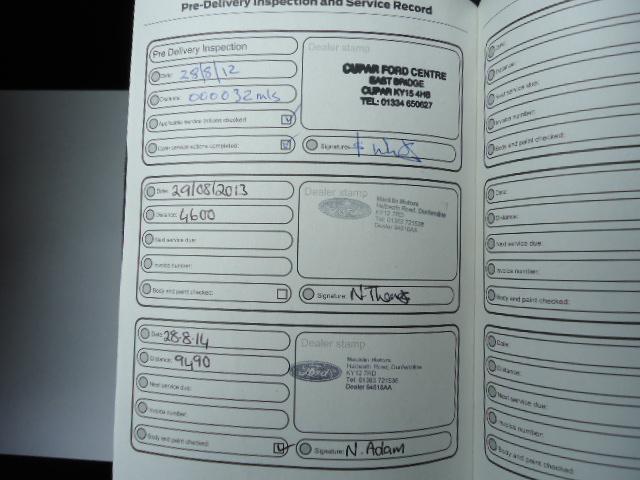 Pre-Delivery Inspection and Service Record
Pre Delivery Inspection
Date: 28/8/12
Distance: 000032 mls
Applicable service actions checked:
Open service actions completed:
Dealer stamp
CUPAR FORD CENTRE
EAST BRIDGE
CUPAR KY15 4HB
TEL: 01334 650627
Signature:
Date: 29/08/2013
Distance: 4600
Next service due:
Invoice number:
Body and paint checked:
Dealer stamp
Ford
Macklin Motors
Halbeath Road, Dunfermline
KY12 7RD
Tel: 01383 721536
Dealer 64516AA
Signature: N. Thomas
Date: 28.8.14
Distance: 9490
Next service due:
Invoice number:
Body and paint checked:
Dealer stamp
Ford
Macklin Motors
Halbeath Road, Dunfermline
KY12 7RD
Tel: 01383 721536
Dealer 64516AA
Signature: N. Adam
Date:
Distance:
Next service due:
Invoice number:
Body and paint checked:
Date:
Distance:
Next service due:
Invoice number:
Body and paint checked:
Date:
Distance:
Next service due:
Invoice number:
Body and paint checked: